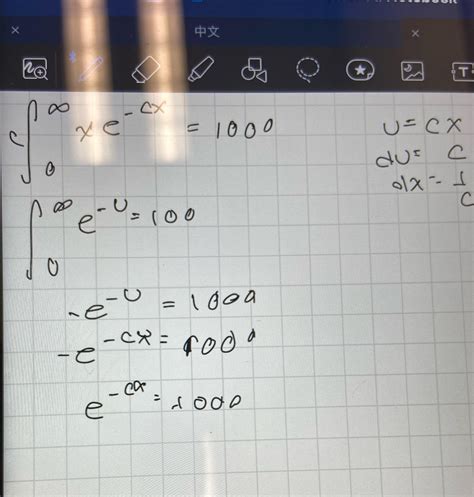 中文
c∫₀^∞ xe^{-cx} = 1000
u = cx
du = c
dx = 1/c
∫₀^∞ e^{-u} = 100
-e^{-u} = 1000
-e^{-cx} = 1000
e^{-cx} = 1000